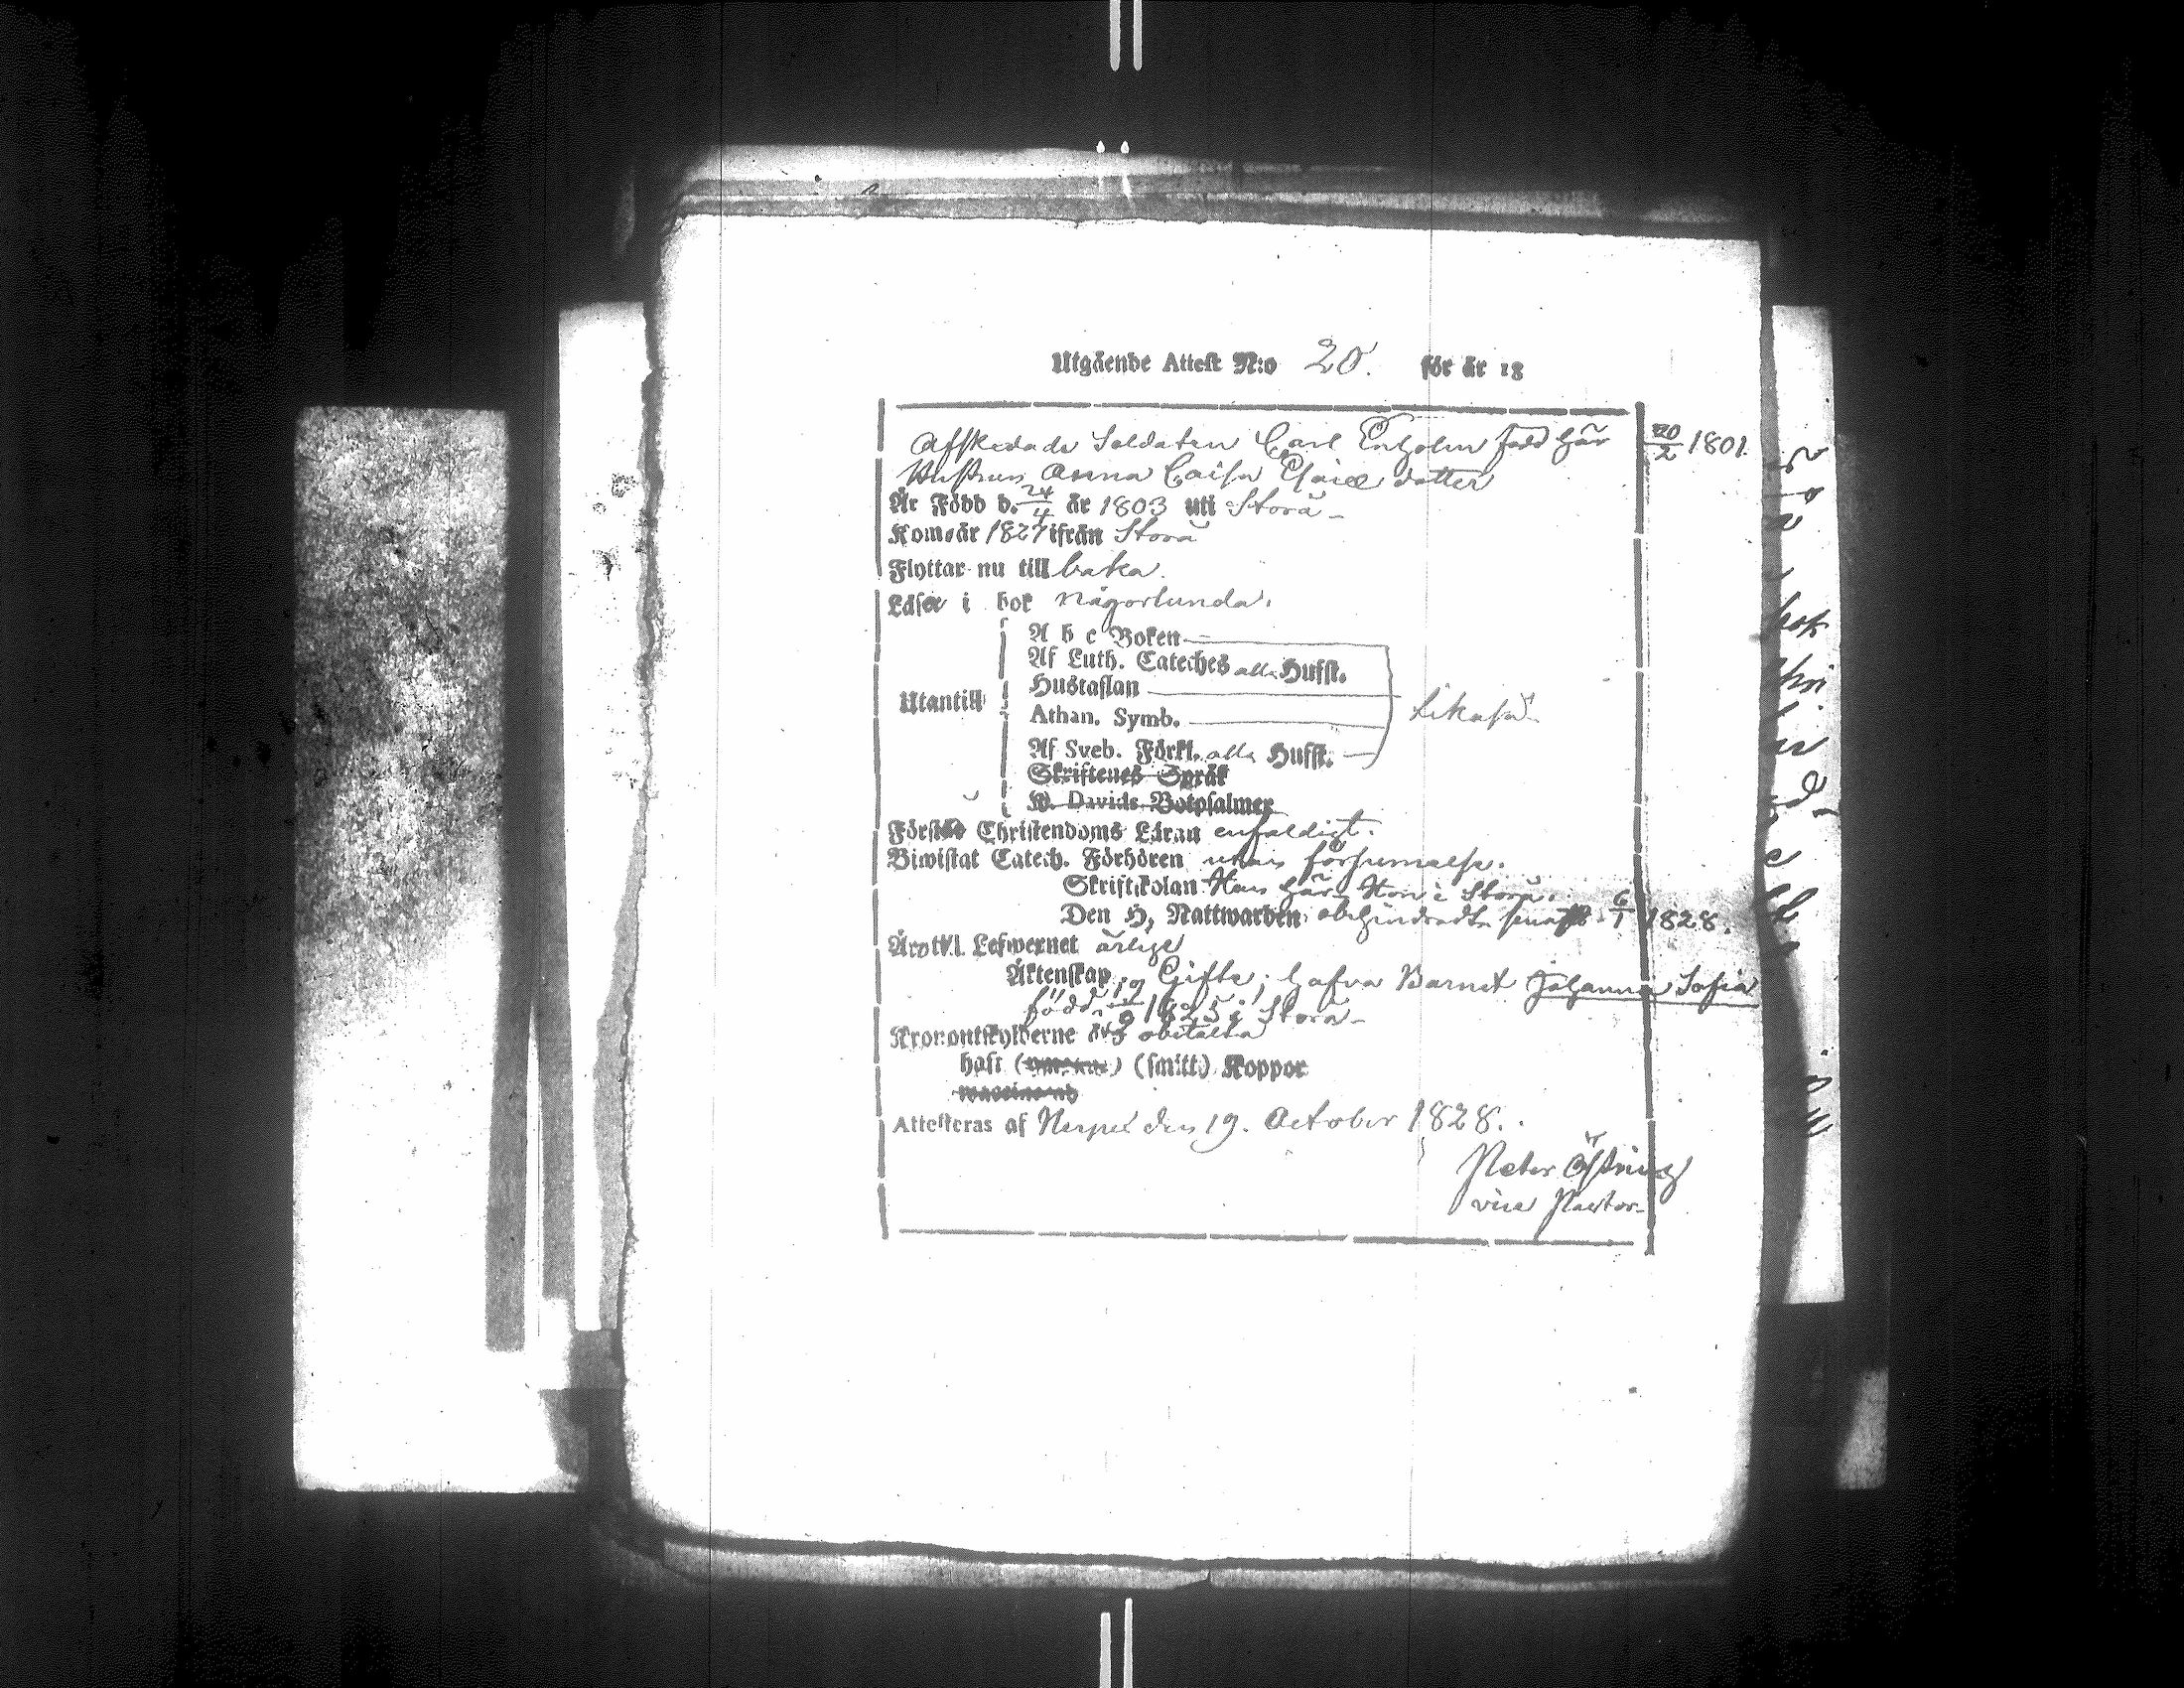 Utgående Attest N:o 20. för år 18
Afskedade Soldaten Carl Enholm född här 20/2 1801.
Hustrun Anna Caisa Esaiædotter
Är Född d. 24/4 år 1803 uti Storå
Kom år 1827 ifrån Storå
Flyttar nu till baka.
Läser i bok någorlunda.
A b c Boken
Af Luth. Cateches alla Hufst.
Hustaflan
Utantill
Athan. Symb.
Likaså
Af Sveb. Förkl. alla Hufst.
Skriftenes Språk
K. Davids Botpsalmer
Förstå Christendoms Läran enfaldigt.
Biwistat Catech. Förhören utan försummelse.
Skriftskolan Han här, Hon i Storå.
Den H. Nattwarden obehindradt senast 6/1 1828.
Är till Lefwernet ärlige
Äktenskap Gifte; hafva Barnet Johanna Sofia
född 19/9 1825 i Storå
Kronoutskylderne äro obetalta
haft (smitt.) Koppor
Attesteras af Nerpes den 19. October 1828.
Peter Östring
vice Pastor